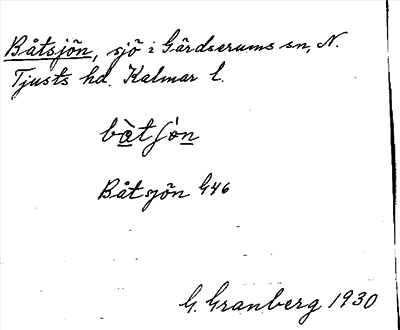 Båtsjön, sjö i Gärdserums sn, N.
Tjusts hd. Kalmar l.
bàtʃòn
Båtsjön G46
G. Granberg 1930